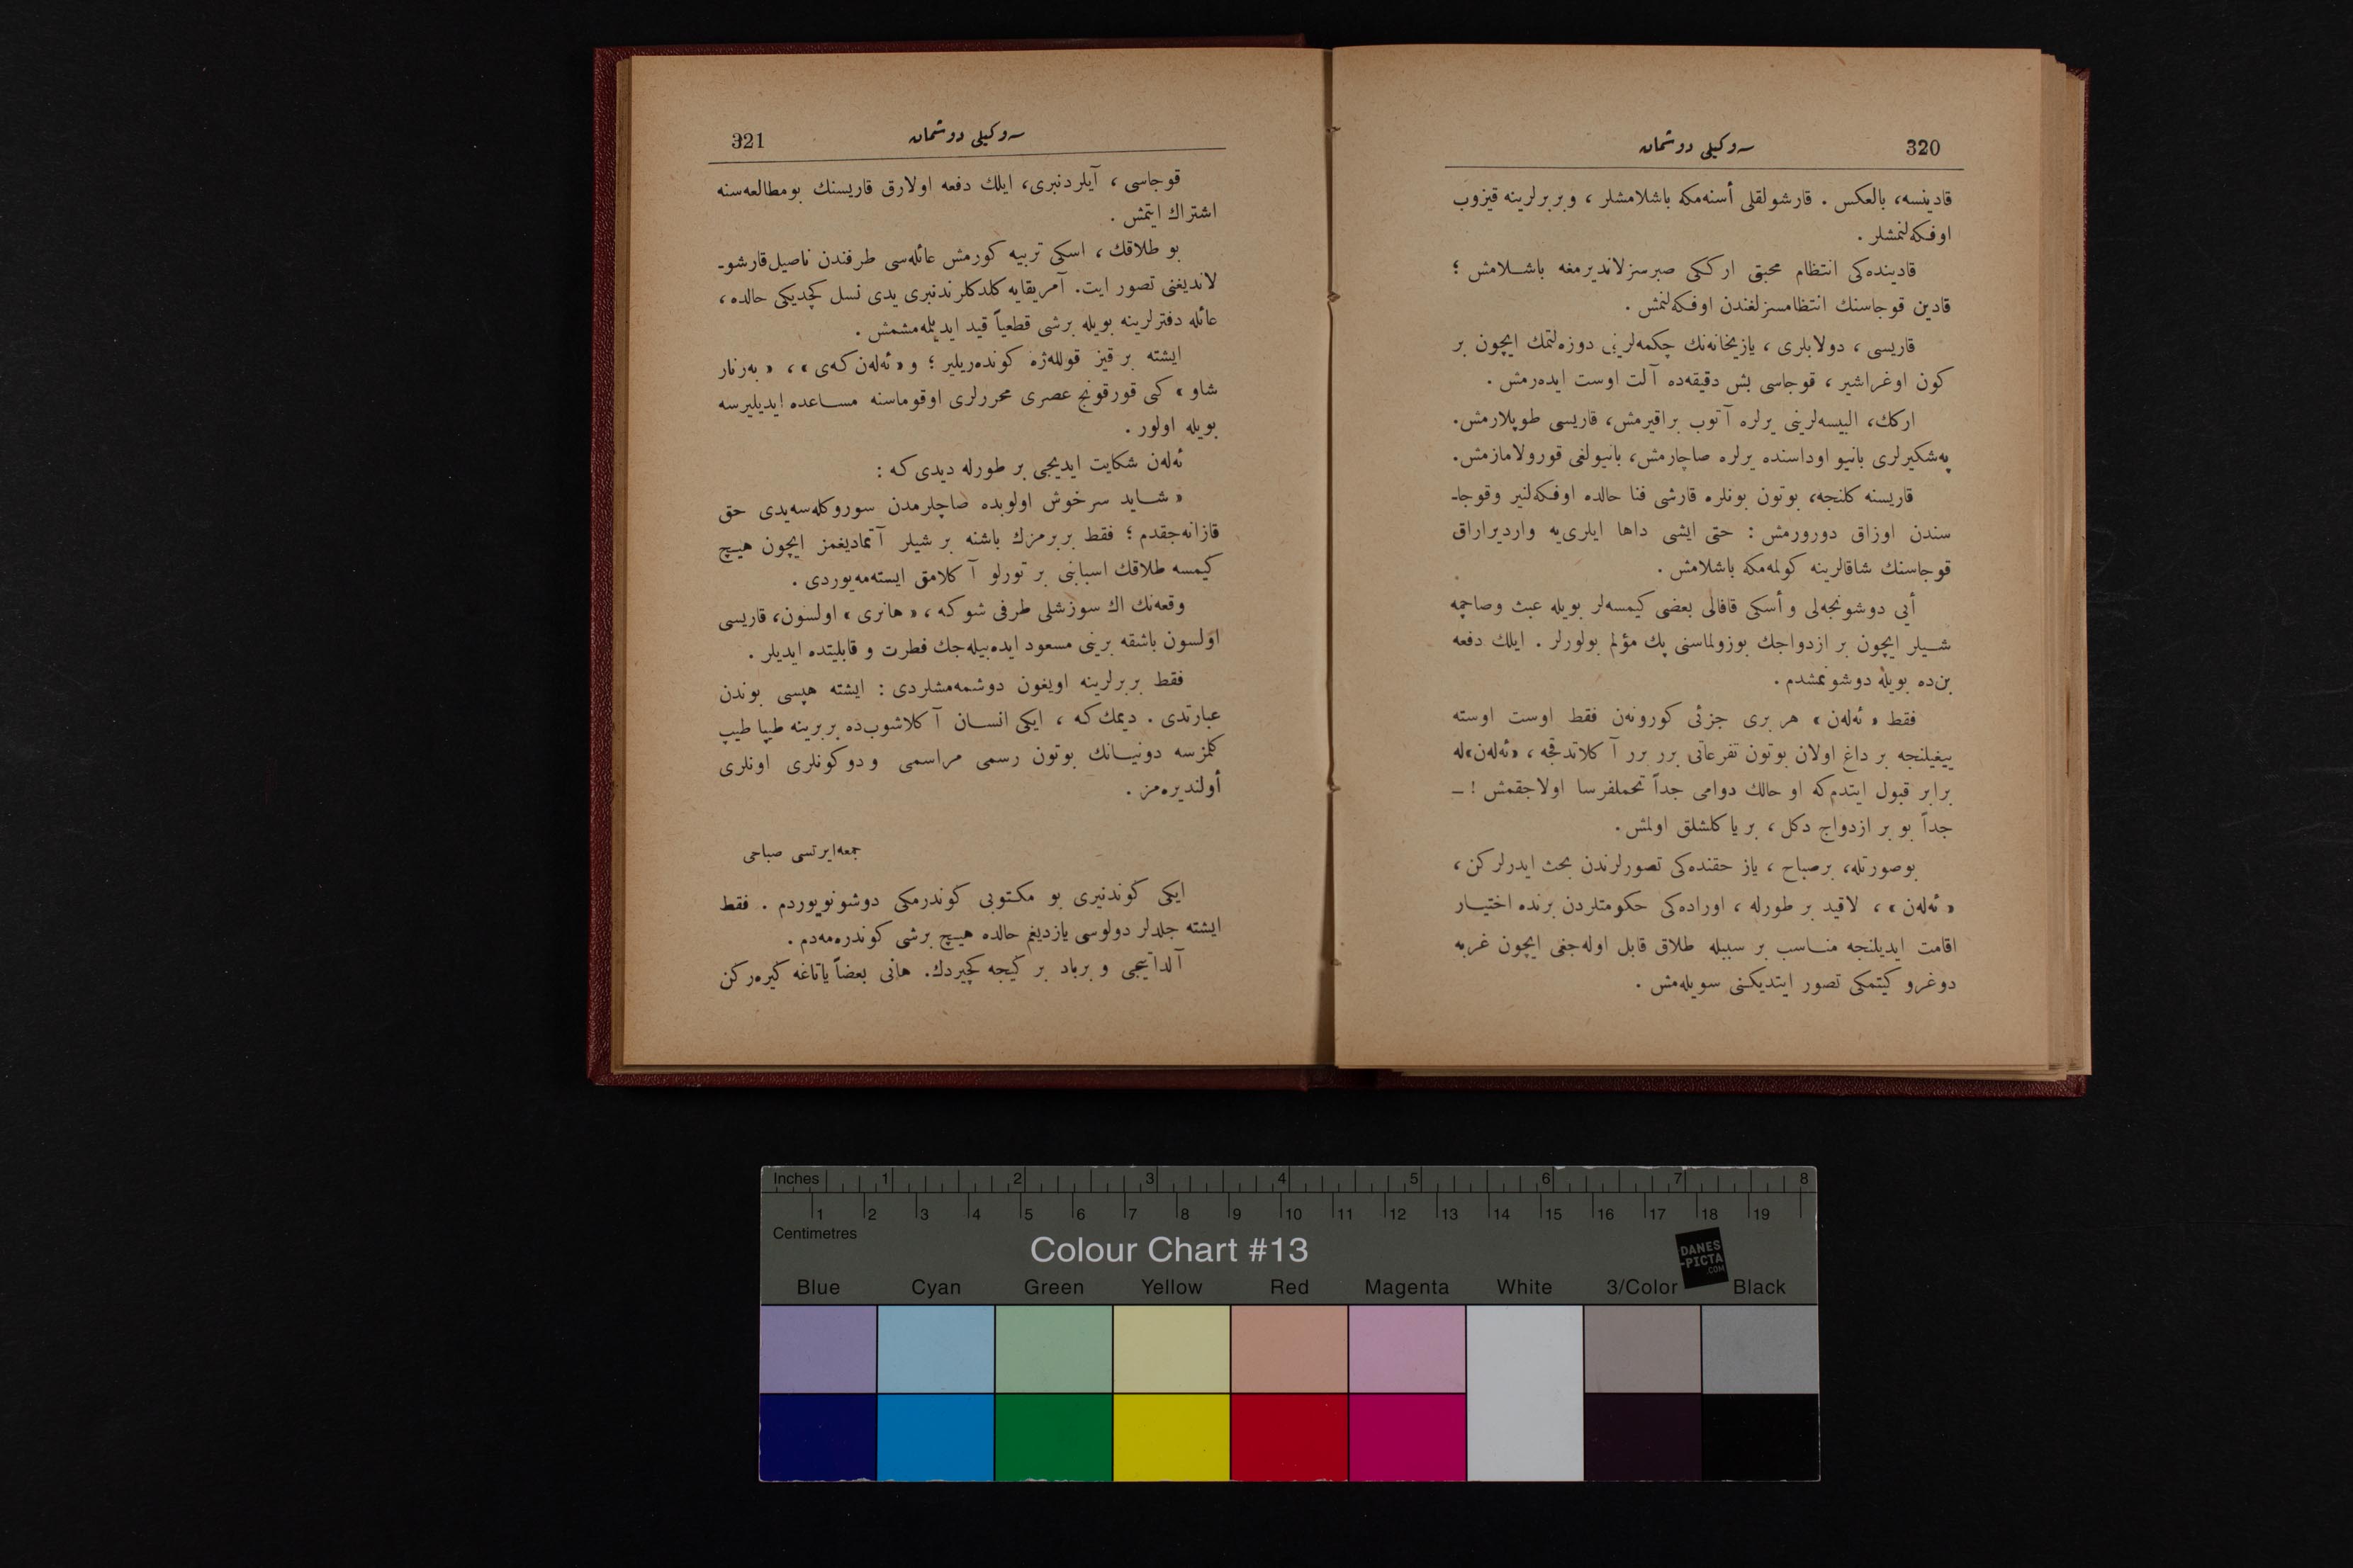 320
سوكيلی دوشمان
قادينسه، بالعكس . قارشولقلی أسنه‌مكه باشلامشلر ، وبربرلرينه قيزوب
اوفكه‌لنمشلر .
قادينده‌كی انتظام محبتی ارككی صبرسزلانديرمغه باشلامش ؛
قادين قوجاسنك انتظامسزلغندن اوفكه‌لنمش .
قاريسی ، دولابلری ، يازيخانه‌نك چكمه‌لرينی دوزه‌لتمك ايچون بر
كون اوغراشير ، قوجاسی بش دقيقه‌ده آلت اوست ايده‌رمش .
ارکك، البيسه‌لرينی يرلره آتوب براقيرمش، قاريسی طوپلارمش.
پەشكيرلری بانيو اوداسنده يرلره صاچارمش، بانيولغی قورولامازمش.
قاريسنه كلنجه، بوتون بونلره قارشی فنا حالده اوفكه‌لنير وقوجا-
سندن اوزاق دورورمش : حتی ايشی داها ايلری‌يه وارديراراق
قوجاسنك شاقالرينه كولمه‌مكه باشلامش .
أيی دوشونجه‌لی و أسكی قافالی بعضی كيمسه‌لر بويله عبث وصاچمه
شيلر ايچون بر ازدواجك بوزولماسنی پك مؤلم بولورلر . ايلك دفعه
بن‌ده بويله دوشونمشدم .
فقط « ئه‌له‌ن » هر بری جزئی كورونه‌ن فقط اوست اوسته
ييغيلنجه بر داغ اولان بوتون تفرعاتی برر برر آكلاتدقجه ، «ئه‌له‌ن»له
برابر قبول ايتدم‌كه او حالك دوامی جداً تحملفرسا اولاجقمش ! —
جداً بو بر ازدواج دكل ، بر ياكلشلق اولمش .
بوصورتله، برصباح ، ياز حقنده‌كی تصورلرندن بحث ايدرلركن ،
« ئه‌له‌ن » ، لاقيد بر طورله ، اوراده‌كی حكومتلردن برنده اختيار
اقامت ايديلنجه مناسب بر سببله طلاق قابل اوله‌جغی ايچون غربه
دوغرو كيتمكی تصور ايتديكنی سويله‌مش .
321
سوكيلی دوشمان
قوجاسی ، آيلردنبری، ايلك دفعه اولارق قاريسنك بومطالعه‌سنه
اشتراك ايتمش .
بو طلاقك ، اسكی تربيه كورمش عائله‌سی طرفندن ناصيل قارشو-
لانديغنی تصور ايت. آمريقايه كلدكلرندنبری يدی نسل كچديكی حالده ،
عائله دفترلرينه بويله برشی قطعياً قيد ايديلمه‌مشمش .
ايشته بر قيز قوللەژه كونده‌ريلير ؛ و « ئه‌له‌ن كه‌ی » ، « به‌رنار
شاو » كبی قورقونج عصری محررلری اوقوماسنه مساعده ايديليرسه
بويله اولور .
ئه‌له‌ن شكايت ايديجی بر طورله ديدی كه :
« شايد سرخوش اولوبده صاچلرمدن سوروكله‌سه‌يدی حق
قازانه‌جقدم ؛ فقط بربرمزك باشنه بر شيلر آتماديغمز ايچون هيچ
كيمسه طلاقك اسبابنی بر تورلو آكلامق ايسته‌مه‌يوردی .
وقعه‌نك اك سوزشلی طرفی شوكه ، « هانری » اولسون، قاريسی
اولسون باشقه برينی مسعود ايده‌بيله‌جك فطرت و قابليتده ايديلر .
فقط بربرلرينه اويغون دوشمه‌مشلردی : ايشته هپسی بوندن
عبارتدی . ديمك‌كه ، ايكی انسان آكلاشوب‌ده بربرينه طيپا طيپ
كلمزسه دونيانك بوتون رسمی مراسمی و دوكونلری اونلری
أولنديره‌مز .
جمعه‌ايرتسی صباحی
ايكی كوندنبری بو مكتوبی كوندرمكی دوشونويوردم . فقط
ايشته جلدلر دولوسی يازديغم حالده هيچ برشی كوندره‌مه‌دم .
آلداتيجی و برباد بر كيجه كچيردك. هانی بعضاً ياتاغه كيره‌ركن
Inches 1 2 3 4 5 6 7 8
1 2 3 4 5 6 7 8 9 10 11 12 13 14 15 16 17 18 19
Centimetres
Colour Chart #13
DANES
-PICTA
.COM
Blue Cyan Green Yellow Red Magenta White 3/Color Black